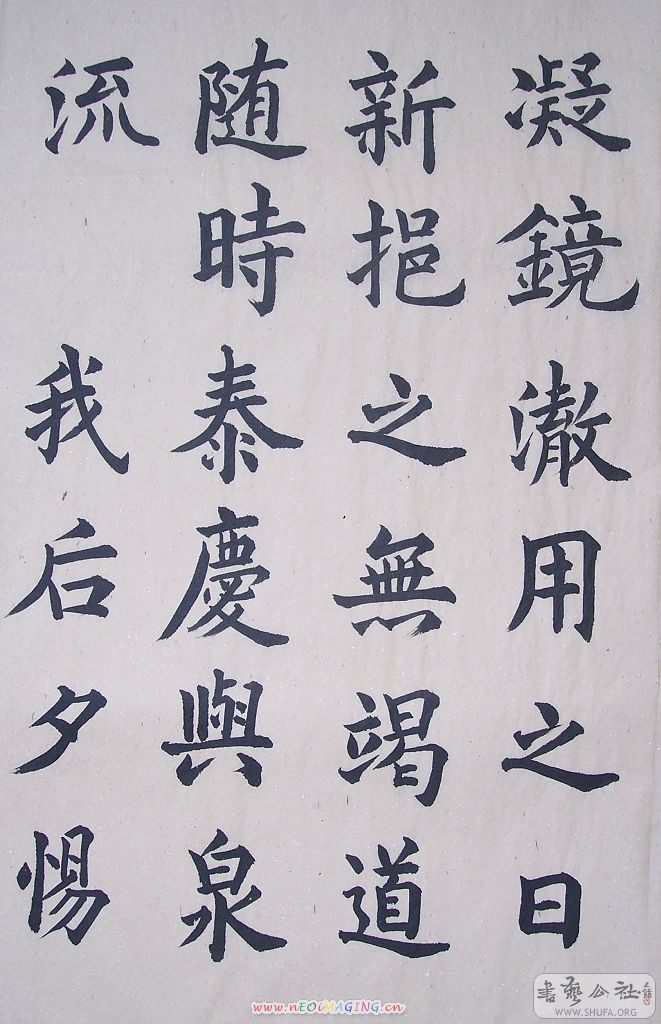 凝鏡澈用之日
新挹之無竭道
随時泰慶與泉
流 我后夕惕
書藝公社
WWW.SHUFA.ORG
www.nEOiMAGING.cn